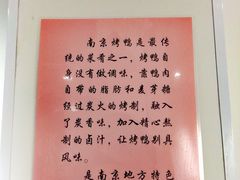 南京烤鸭是最传
统的菜肴之一，烤鸭自
身没有做调味，靠鸭肉
自带的脂肪和麦芽糖
经过炭火的烤制，融入
了炭香味，加入精心熬
制的卤汁，让烤鸭别具
风味。
是南京地方特色